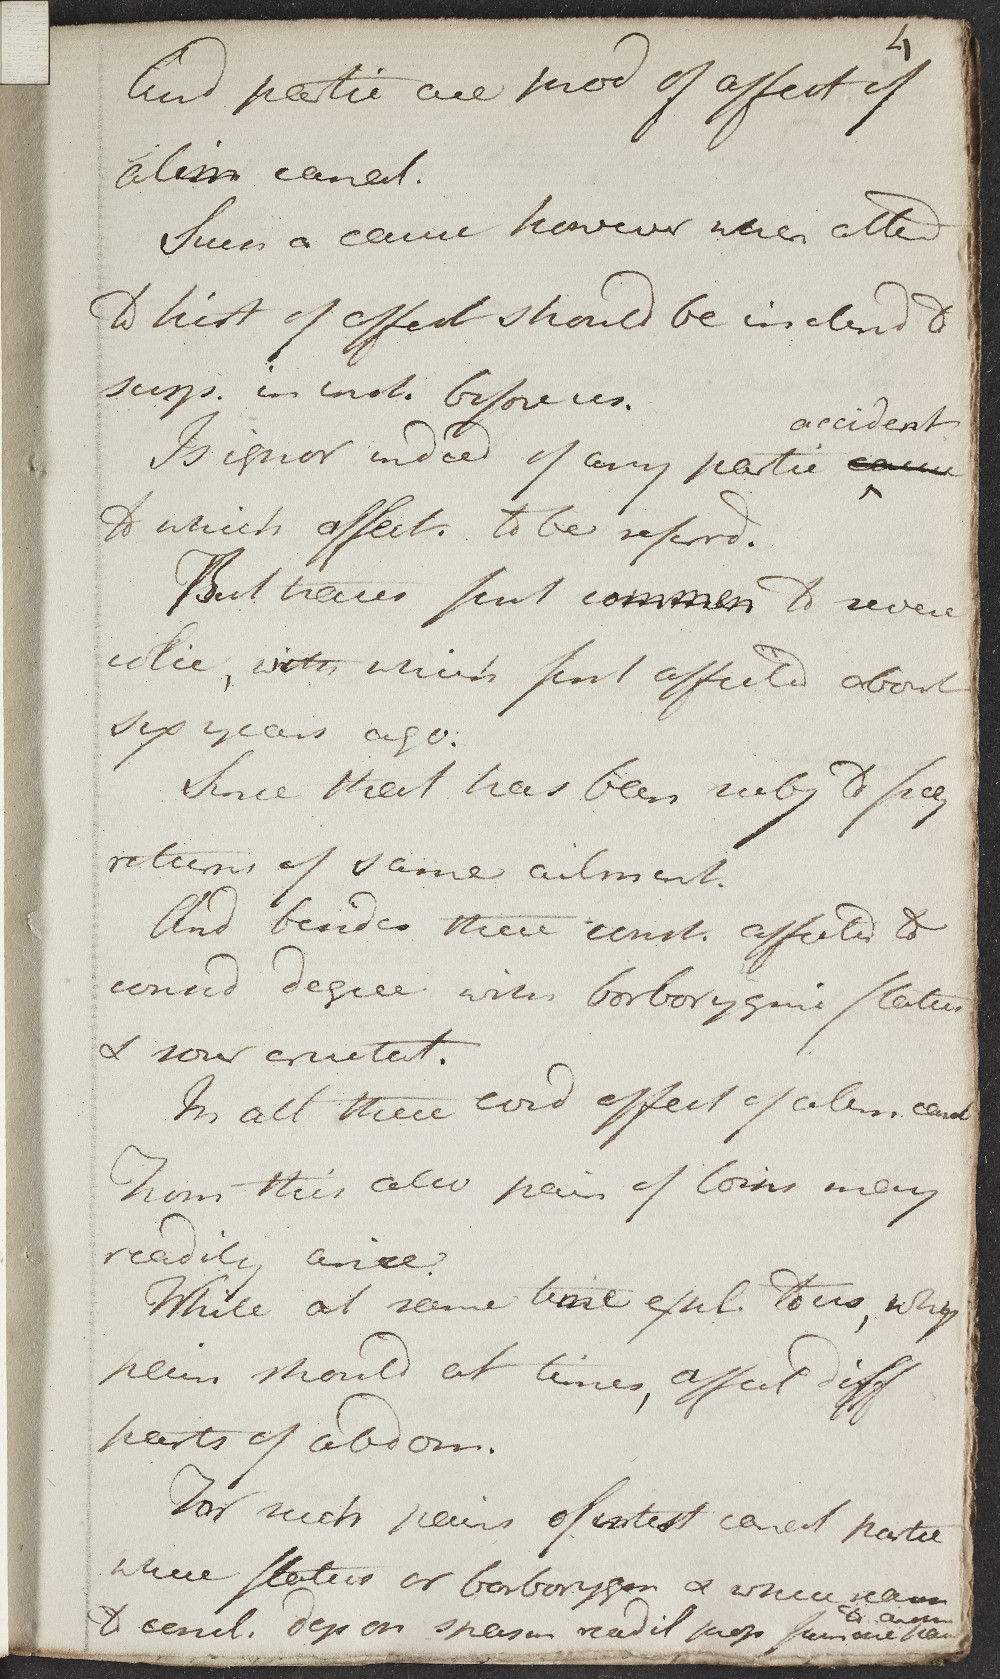 4
And partic are prod of affect of
alim canal.
Such a cause however when attend
to hist of affect should be inclend to
susp. in inst. before us.
accident
Is ignor indeed of any partic cause
to which affect. to be referrd.
But traces first commen to severe
colic, with which first affected about
six years ago.
Since that has been subj to freq
returns of same ailment.
And besides these const. affected to
consid degree with borborygmi flatus
& sour eructat.
In all these evid affect of alim. canal
From this also pain of loins may
readily arise.
While at same time expl. to us, why
pain should at times, affect diff
parts of abdom.
For such pains of intest canal partic
where flatus or borborygm & where
to canal. dep on spasm readil